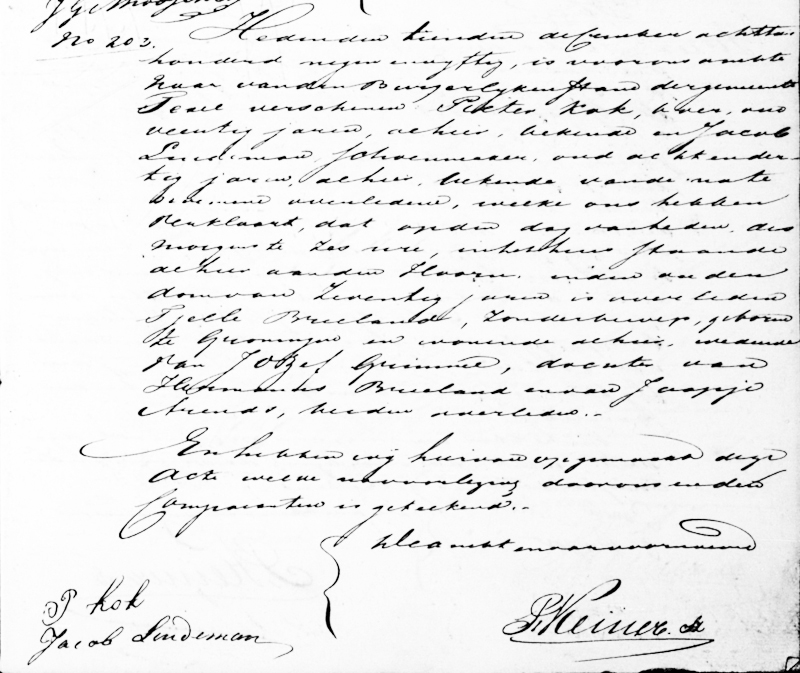 No 203. Heden den tienden december achttien
honderd negen en vyftig, is voor ons ambte
naar van den Burgerlyken stand der gemeente
Texel verschenen Pieter Kok, boer, oud
veertig jaren, alhier, bekende en Jacob
Lindeman schoenmaker, oud acht en der-
tig jaren, alhier, bekende van de nate
noemene overledene, welke ons hebben
verklaart, dat op den dag van heden des
morgens te zes ure, in het huis staande
alhier aan den Hoorn in den ouder
dom van zeventig jaren is overleden
Tjelle Brieland, zonder beroep, geboren
te Groningen en wonende alhier, weduwe
van Jozef Grimme, dochter van
Hermanus Brieland en van Jaapje
Arends, beiden overleden..
En hebben wij hiervan opgemaakt deze
Acte welke na voorlezing door ons en den
Comparanten is geteekend..
De ambtenaar voornoemd
P Kok
Jacob Lindeman